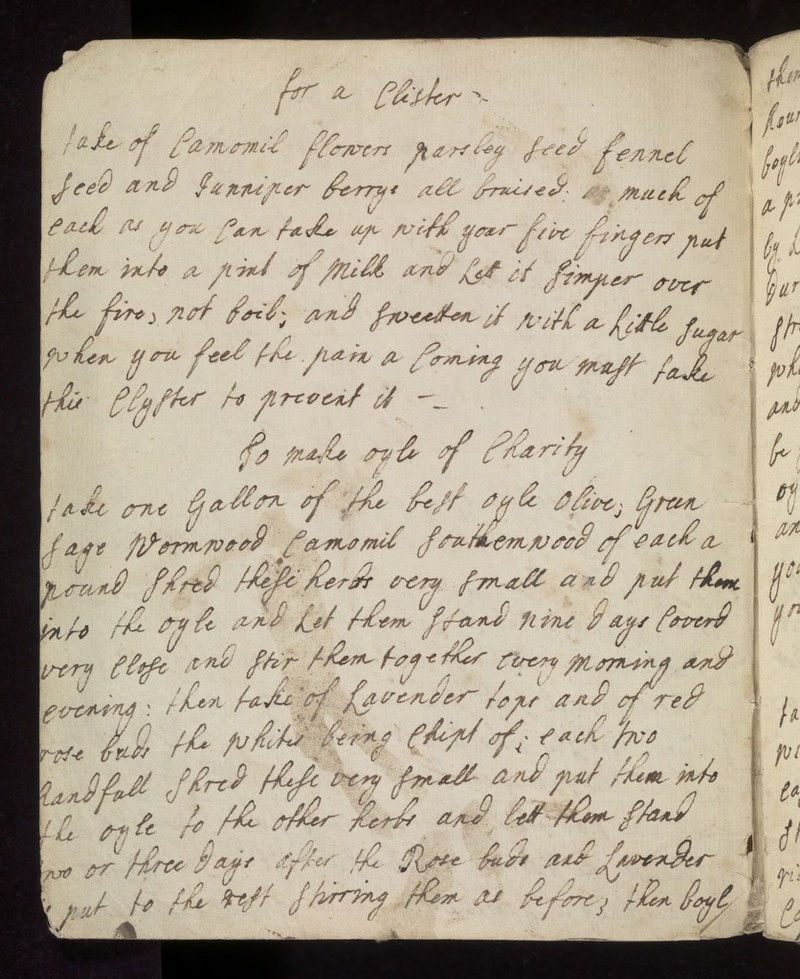 for a Clister
take of Camomil flowers parsley seed fennel
seed and Junniper berrys all bruised: as much of
each as you Can take up with your five fingers put
them into a pint of Milk and Lett it Simper over
the fire, not boil; and Sweetten it with a Little Sugar
when you feel the pain a Coming you must take
this Clyster to prevent it
To make oyle of Charity
take one Gallon of the best oyle olive, Green
Sage Wormwood Camomil Southernwood of each a
pound Shred these herbs very Small and put them
into the oyle and Let them Stand nine days Coverd
very Close and Stir them together every morning and
evening: then take of Lavender tops and of red
rose buds the whites being Chipt of; each two
handfull Shred these very Small and put them into
the oyle to the other herbs and lett them Stand
two or three days after the Rose buds and Lavender
is put to the rest Stirring them as before, then boyl